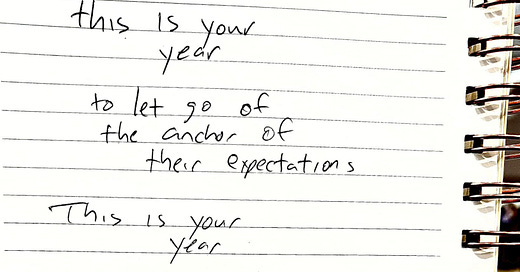 this is your
year
to let go of
the anchor of
their expectations
This is your
year